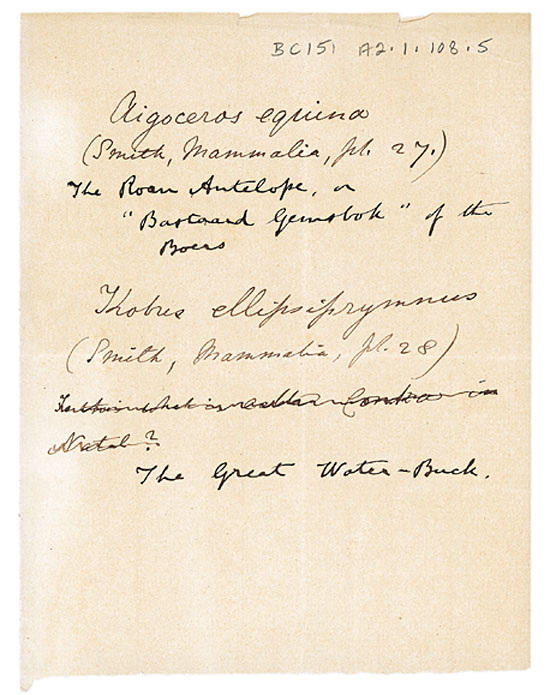 BC151 A2.1.108.5
Aigoceros equina
(Smith, Mammalia, pl. 27.)
The Roan Antelope, or
"Bastaard Gemsbok" of the
Boers
Kobus ellipsiprymnus
(Smith, Mammalia, pl. 28)
what is called in
Natal?
The Great Water-Buck.